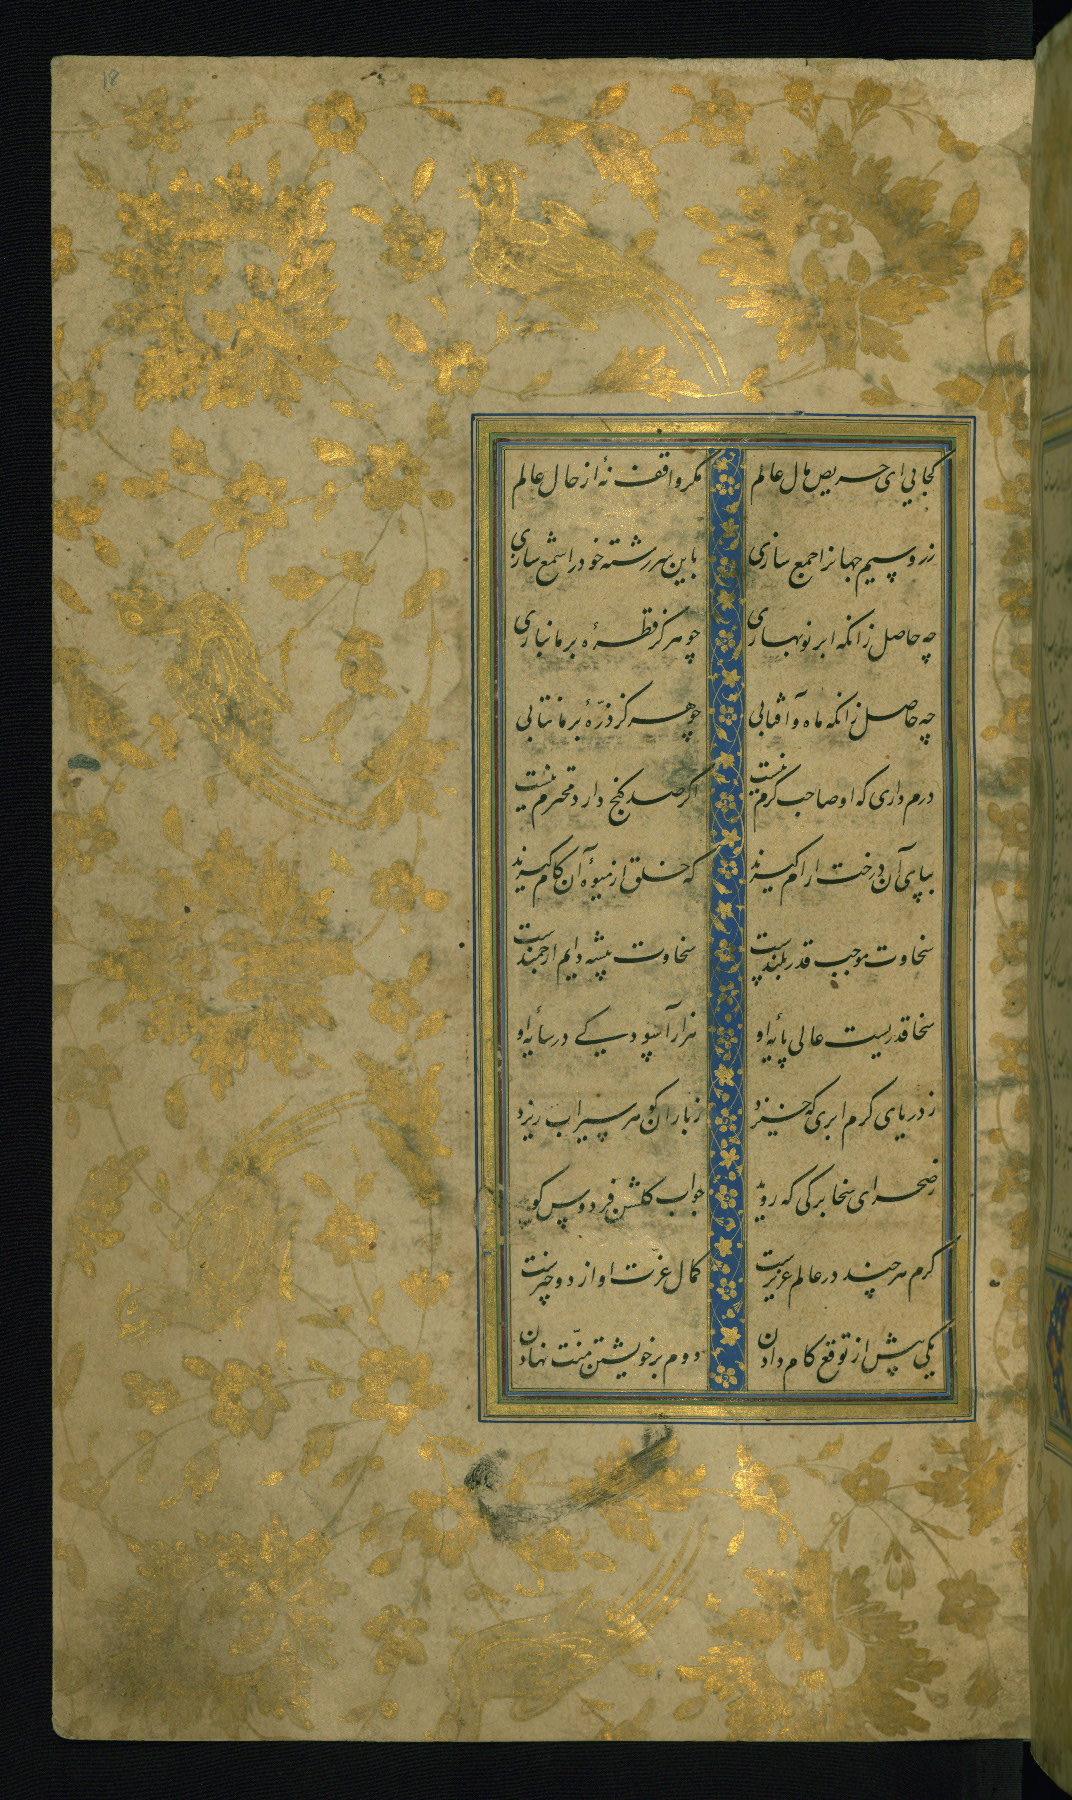 18
کجایی ای حریص مال عالم مکر واقف نهٔ از حال عالم
زر و سیم جهانرا جمع سازی باین سررشته خود را شمع سازی
چه حاصل زانکه ابر نوبهاری چو هرکز قطرهٔ بر ما نباری
چه حاصل زانکه ماه و آفتابی چو هرکز ذرّهٔ بر ما نتابی
درم داری که او صاحب کرم نیست اکر صد کنج دارد محترم نیست
بپای آن درخت ارام کیرند که خلق از میوهٔ آن کام کیرند
سخاوت موجب قدر بلندیست سخاوت پیشه دایم ارجمندست
سخا قدریست عالی پایهٔ او هزار آسودیکی در سایهٔ او
ز دریای کرم ابری که خیزد ز باران کوهر سیراب ریزد
ز صحرای سخا برکی که روید جواب کلشن فردوس کوید
کرم هر چند در عالم عزیزست کمال عزّت او از دو چیزست
یکی پیش از توقع کام دادن دوم بر خویشتن منّت نهادن